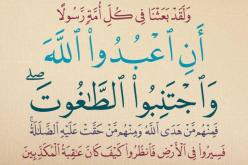 وَلَقَدْ بَعَثْنَا فِي كُلِّ أُمَّةٍ رَّسُولًا
أَنِ ٱعْبُدُوا۟ ٱللَّهَ
وَٱجْتَنِبُوا۟ ٱلطَّـٰغُوتَ ۖ
فَمِنْهُم مَّنْ هَدَى ٱللَّهُ وَمِنْهُم مَّنْ حَقَّتْ عَلَيْهِ ٱلضَّلَـٰلَةُ ۚ
فَسِيرُوا۟ فِي ٱلْأَرْضِ فَٱنظُرُوا۟ كَيْفَ كَانَ عَـٰقِبَةُ ٱلْمُكَذِّبِينَ